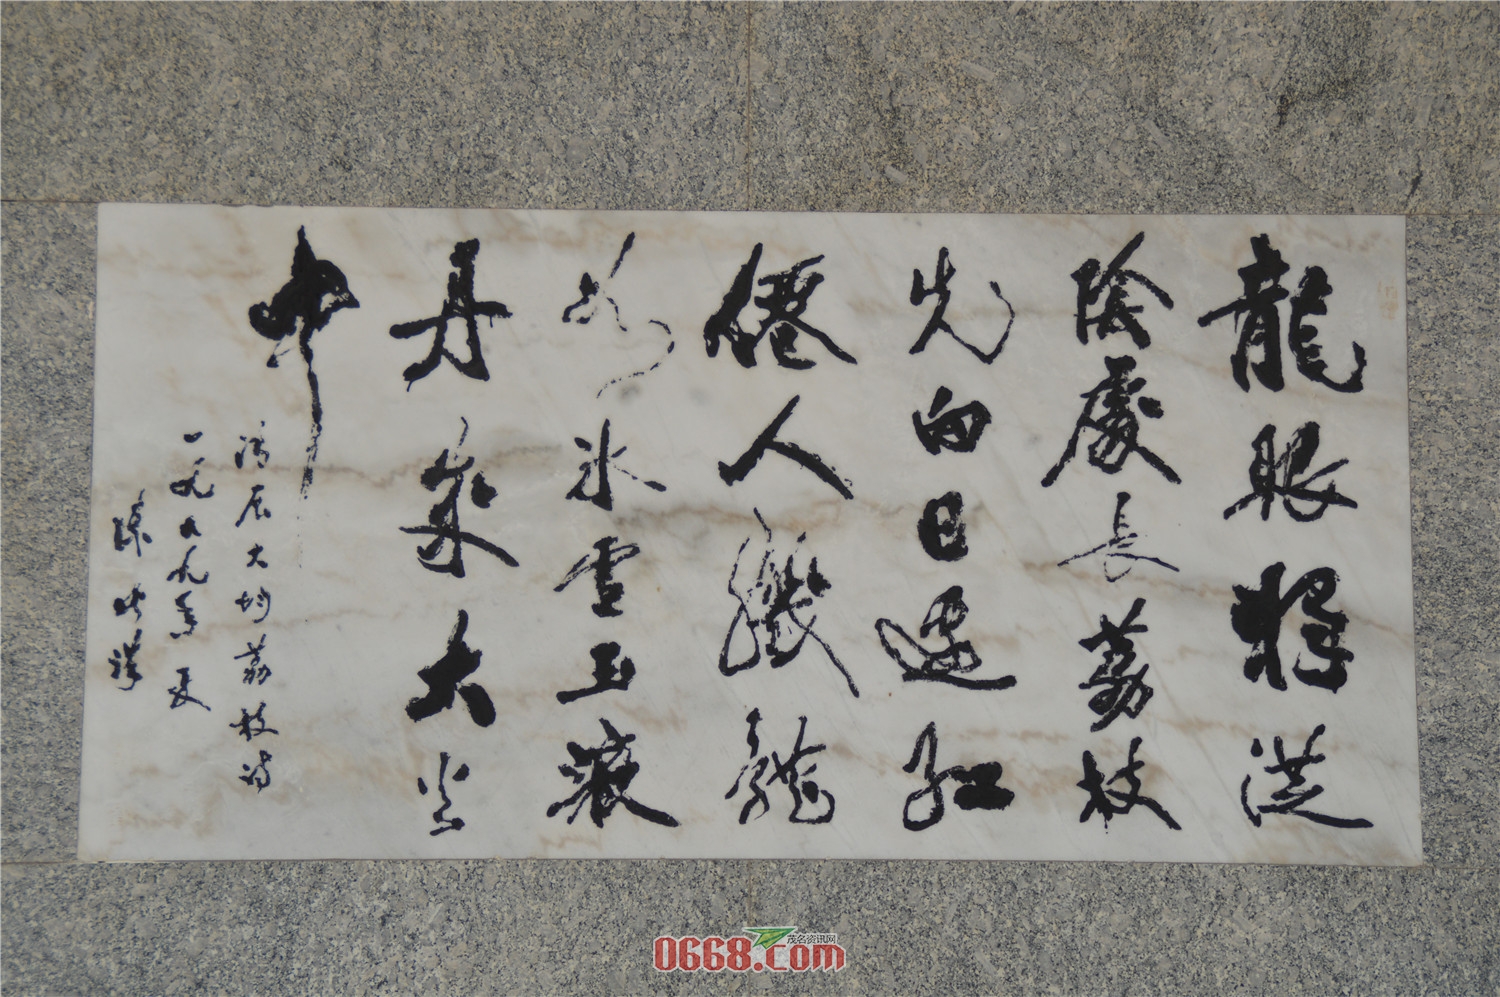 龍眼將
陰處長荔枝
先向日邊紅
僊人纖體
如冰雪玉液
丹泉大
中
清屈大均荔枝詩
一九九九年夏
陳
0668.com
茂名资讯网